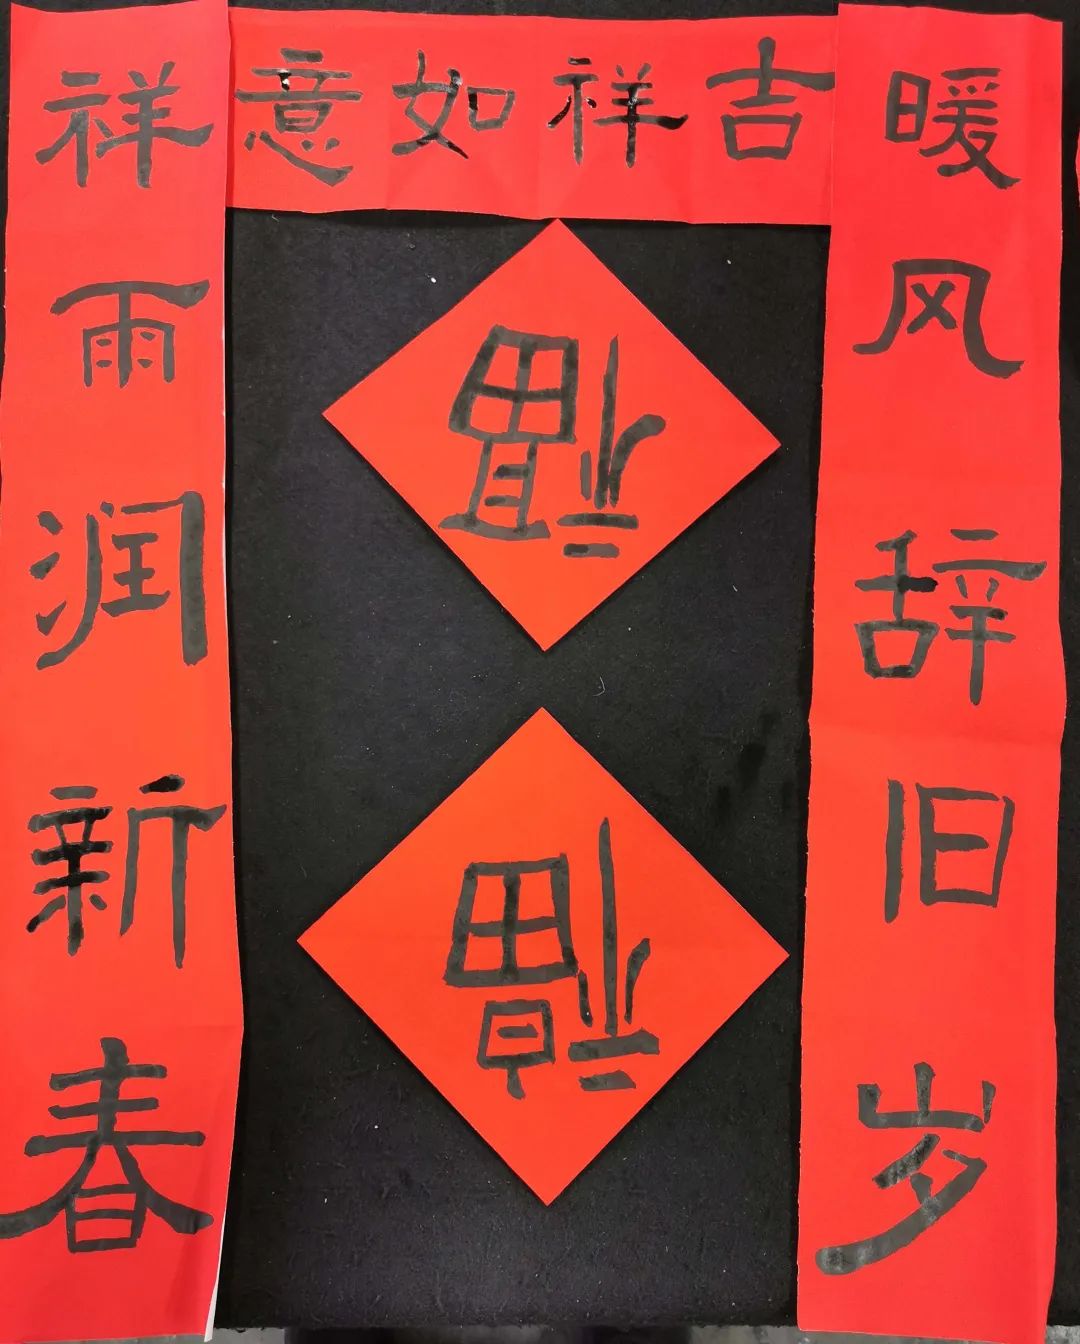 吉祥如意
暖风辞旧岁
祥雨润新春
福
福